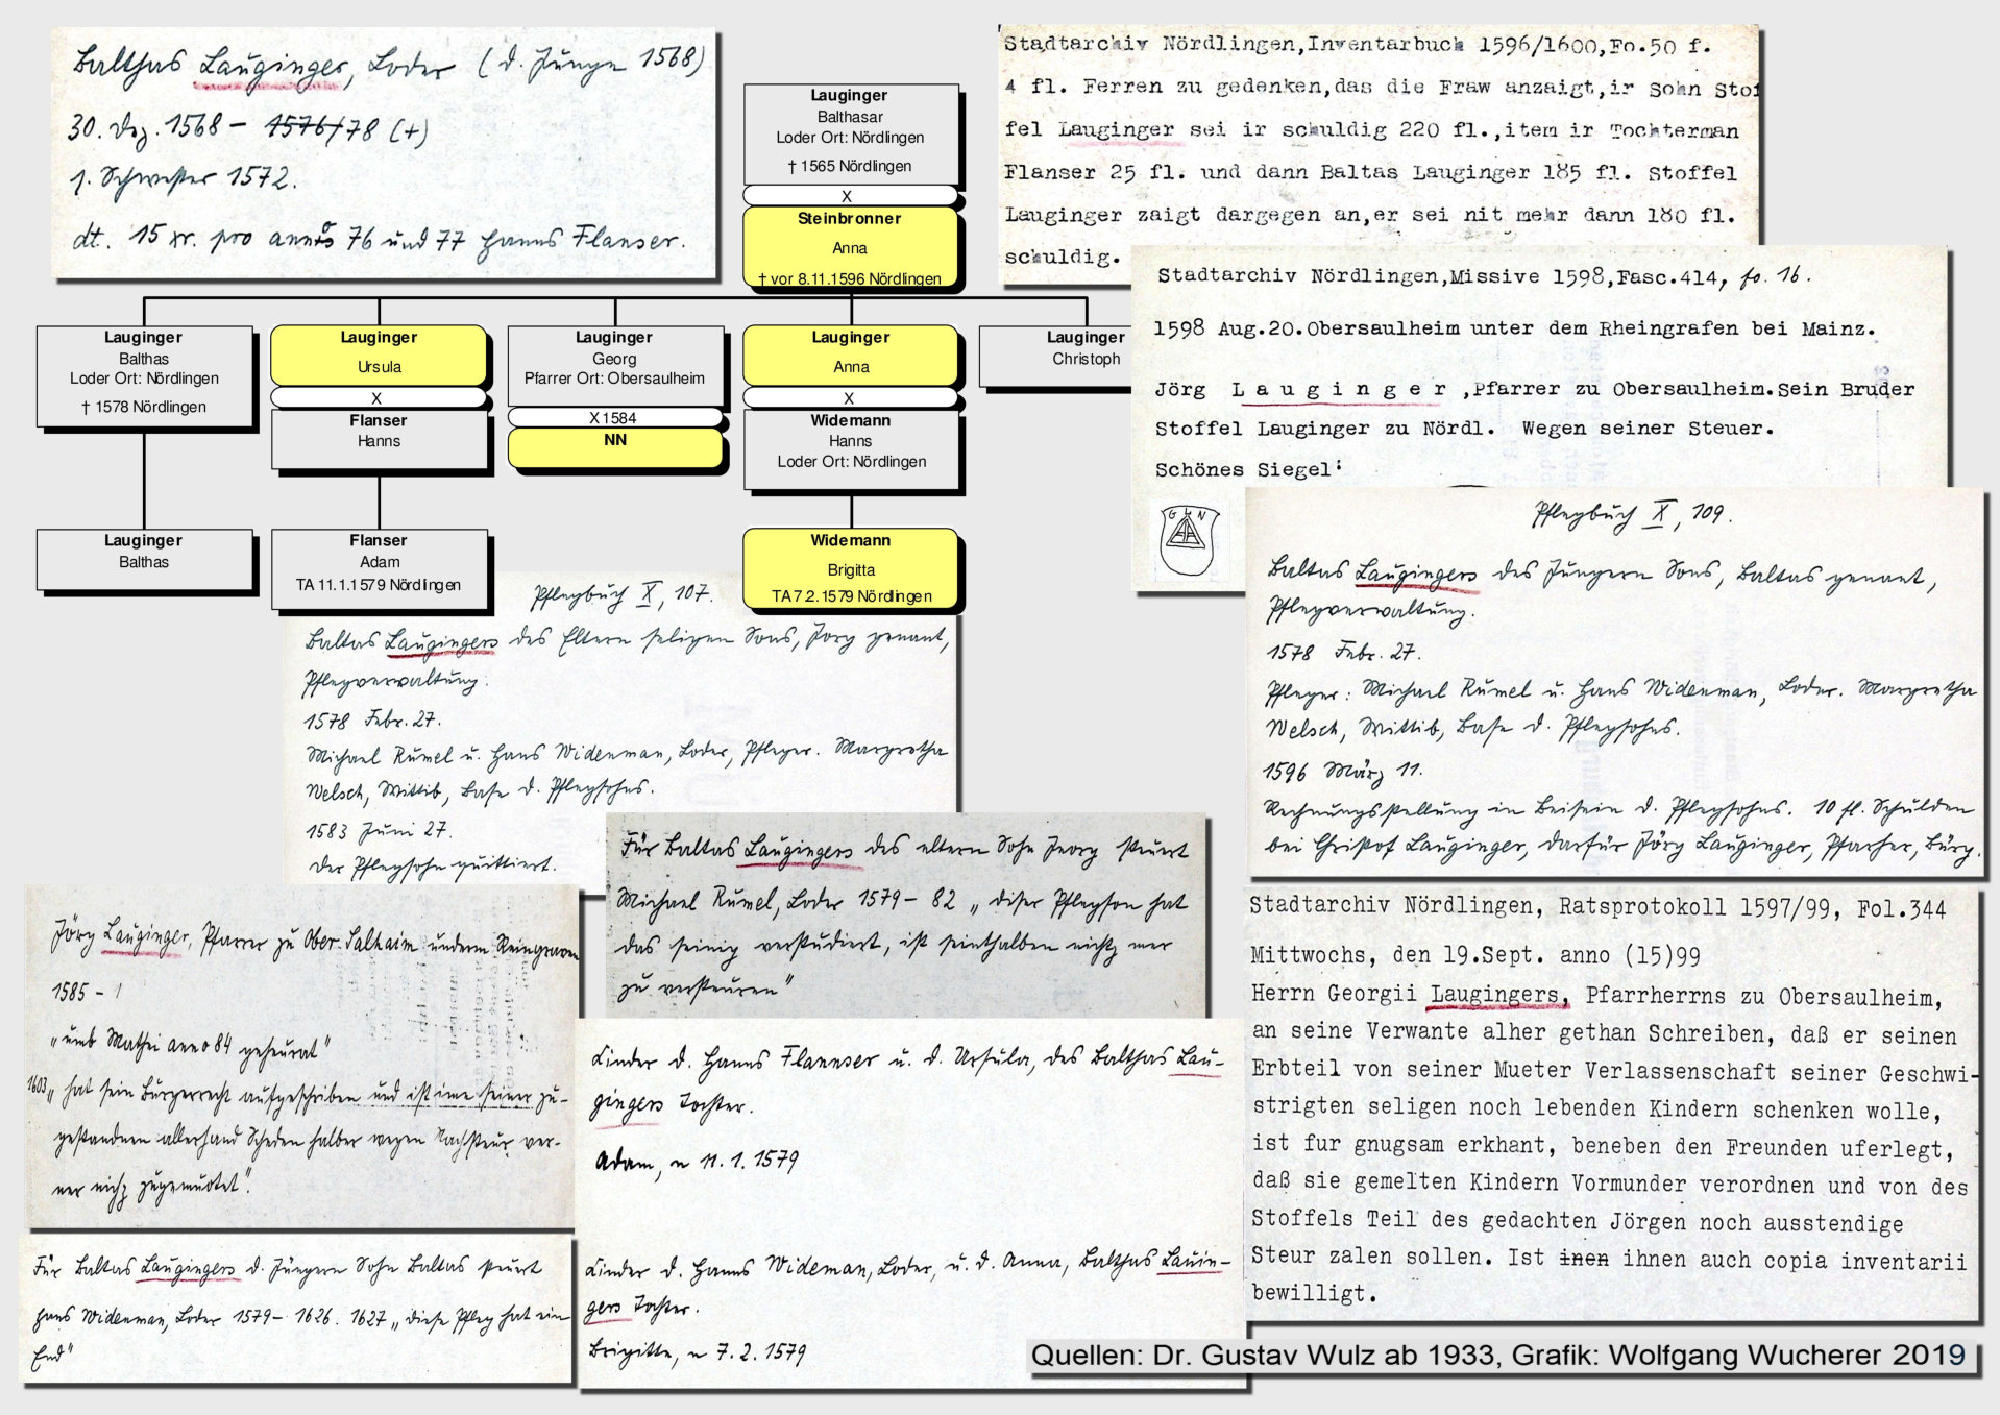 Balthas Lauginger, Loder (d. Junge 1568)
30. Dez. 1568 - 1576/78 (+)
1. Schwester 1572.
dt. 15 xr. pro annis 76 und 77 Hanns Flanser.
Lauginger
Balthasar
Loder Ort: Nördlingen
† 1565 Nördlingen
X
Steinbronner
Anna
† vor 8.11.1596 Nördlingen
Lauginger
Balthas
Loder Ort: Nördlingen
† 1578 Nördlingen
Lauginger
Balthas
Lauginger
Ursula
X
Flanser
Hanns
Flanser
Adam
TA 11.1.1579 Nördlingen
Lauginger
Georg
Pfarrer Ort: Obersaulheim
X 1584
NN
Lauginger
Anna
X
Widemann
Hanns
Loder Ort: Nördlingen
Widemann
Brigitta
TA 7.2.1579 Nördlingen
Lauginger
Christoph
Stadtarchiv Nördlingen,Inventarbuch 1596/1600,Fo.50 f.
4 fl. Ferren zu gedenken,das die Fraw anzaigt,ir Sohn Stof
fel Lauginger sei ir schuldig 220 fl.,item ir Tochterman
Flanser 25 fl. und dann Baltas Lauginger 185 fl. Stoffel
Lauginger zaigt dargegen an,er sei nit mehr dann 180 fl.
schuldig.
Stadtarchiv Nördlingen,Missive 1598,Fasc.414, fo. 16.
1598 Aug.20.Obersaulheim unter dem Rheingrafen bei Mainz.
Jörg L a u g i n g e r ,Pfarrer zu Obersaulheim.Sein Bruder
Stoffel Lauginger zu Nördl. Wegen seiner Steuer.
Schönes Siegel:
G L N
Pflegbuch X, 109.
Baltas Laugingers des Jüngern Sons, Baltas genant,
Pflegverwaltung.
1578 Febr. 27.
Pfleger: Michael Rümel u. Hans Widenman, Loder. Margretha
Welsch, Wittib, Base d. Pflegsohns.
1596 März 11.
Rechnungsstellung in Beisein d. Pflegsohns. 10 fl. Schulden
bei Christof Lauginger, darfür Jörg Lauginger, Pfarher, Bürg.
Pflegbuch X, 107.
Baltas Laugingers des Eltern seligen Sons, Jorg genant,
Pflegverwaltung.
1578 Febr. 27.
Michael Rümel u. Hans Widenman, Loder, Pfleger. Margretha
Welsch, Wittib, Base d. Pflegsohns.
1583 Juni 27.
Der Pflegsohn quittiert.
Für Baltas Laugingers des eltern Sohn Jeorg steuert
Michael Rümel, Loder 1579 - 82 „dieser Pflegson hat
das seinig verstudiert, ist seinthalben nichtz mer
zu versteuren"
Jörg Lauginger, Pfarrer zu Ober Salhaim underm Reingraven
1585 -
„umb Mathei anno 84 geheurat"
1603 „hat sein Bürgerrecht aufgeschriben und ist ime seiner zu-
gestandnen allerhand Scheden halber wegen Nachsteur ver-
ner nichtz zugemuotet".
Für Baltas Laugingers d. Jüngern Sohn Baltas steuert
Hans Widenman, Loder 1579 - 1626. 1627 „diese Pfleg hat ein
End"
Kinder d. Hanns Flannser u. d. Ursula, des Balthas Lau-
gingers Tochter.
Adam, ~ 11. 1. 1579
Kinder d. Hanns Wideman, Loder, u. d. Anna, Balthas Lauin-
gers Tochter.
Brigitta, ~ 7. 2. 1579
Stadtarchiv Nördlingen, Ratsprotokoll 1597/99, Fol.344
Mittwochs, den 19.Sept. anno (15)99
Herrn Georgii Laugingers, Pfarrherrns zu Obersaulheim,
an seine Verwante alher gethan Schreiben, daß er seinen
Erbteil von seiner Mueter Verlassenschaft seiner Geschwi-
strigten seligen noch lebenden Kindern schenken wolle,
ist fur gnugsam erkhant, beneben den Freunden uferlegt,
daß sie gemelten Kindern Vormunder verordnen und von des
Stoffels Teil des gedachten Jörgen noch ausstendige
Steur zalen sollen. Ist inen ihnen auch copia inventarii
bewilligt.
Quellen: Dr. Gustav Wulz ab 1933, Grafik: Wolfgang Wucherer 2019